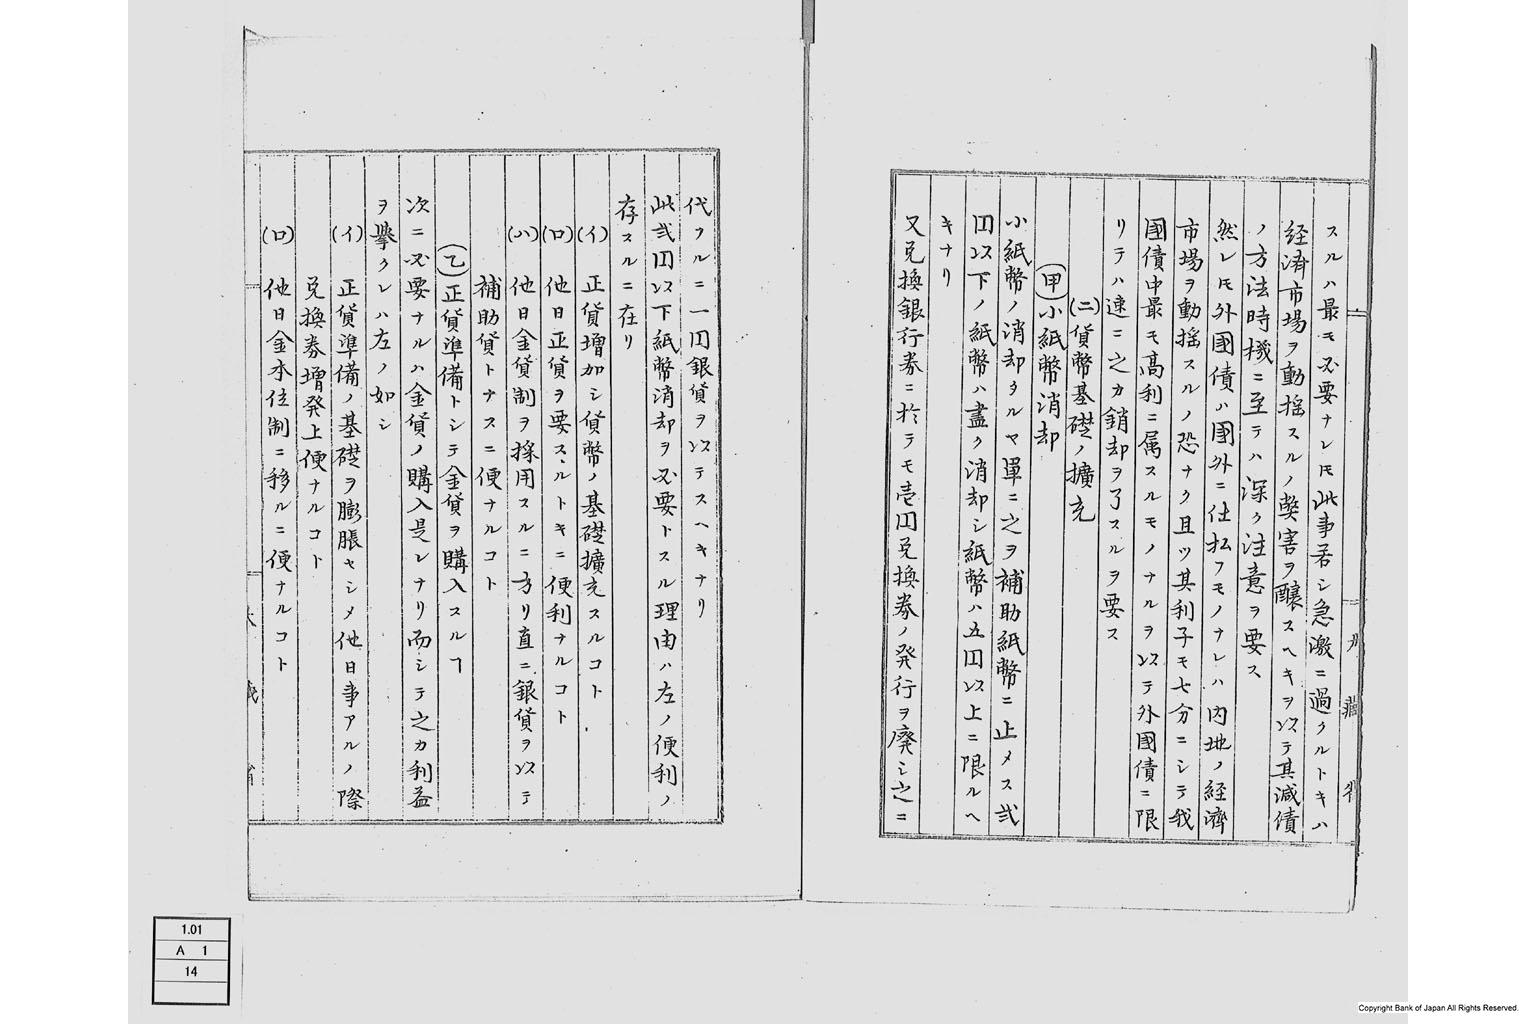 スルハ最モ必要ナレモ此事若シ急激ニ過クルトキハ
経済市場ヲ動揺スルノ弊害ヲ醸スヘキヲ以テ其減債
ノ方法時機ニ至テハ深ク注意ヲ要ス
然レモ外國債ハ國外ニ仕払フモノナレハ内地ノ経済
市場ヲ動揺スルノ恐ナク且ツ其利子モ七分ニシテ我
國債中最モ高利ニ属スルモノナルヲ以テ外國債ニ限
リテハ速ニ之カ銷却ヲ了スルヲ要ス
(二)貨幣基礎ノ擴充
(甲)小紙幣消却
小紙幣ノ消却タルヤ單ニ之ヲ補助紙幣ニ止メス弐
円以下ノ紙幣ハ盡ク消却シ紙幣ハ五円以上ニ限ルヘ
キナリ
又兌換銀行券ニ於テモ壱円兌換券ノ発行ヲ廃シ之ニ
代フルニ一円銀貨ヲ以テスヘキナリ
此弐円以下紙幣消却ヲ必要トスル理由ハ左ノ便利ノ
存スルニ在リ
(イ) 正貨増加シ貨幣ノ基礎擴充スルコト
(ロ) 他日正貨ヲ要スルトキニ便利ナルコト
(ハ) 他日金貨制ヲ採用スルニ方リ直ニ銀貨ヲ以テ
補助貨トナスニ便ナルコト
(乙)正貨準備トシテ金貨ヲ購入スルヿ
次ニ必要ナルハ金貨ノ購入是レナリ而シテ之カ利益
ヲ擧クレハ左ノ如シ
(イ) 正貨準備ノ基礎ヲ膨脹セシメ他日事アルノ際
兌換券増発上便ナルコト
(ロ) 他日金本位制ニ移ルニ便ナルコト
大蔵省
1.01
A 1
14
Copyright Bank of Japan All Rights Reserved.